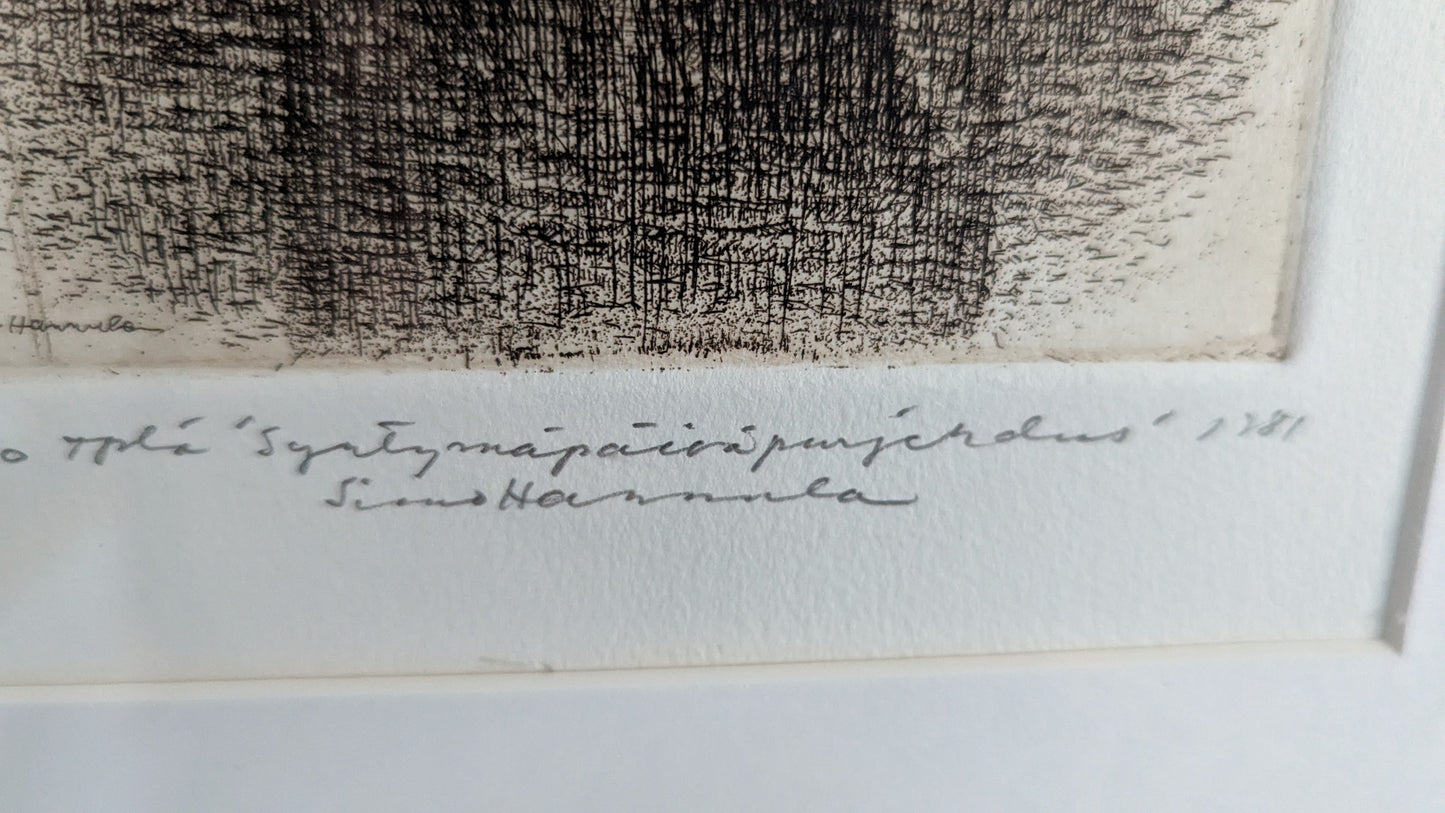 Hannula
o tplá 'Syntymäpäiväpurjehdus' 1981
Simo Hannula